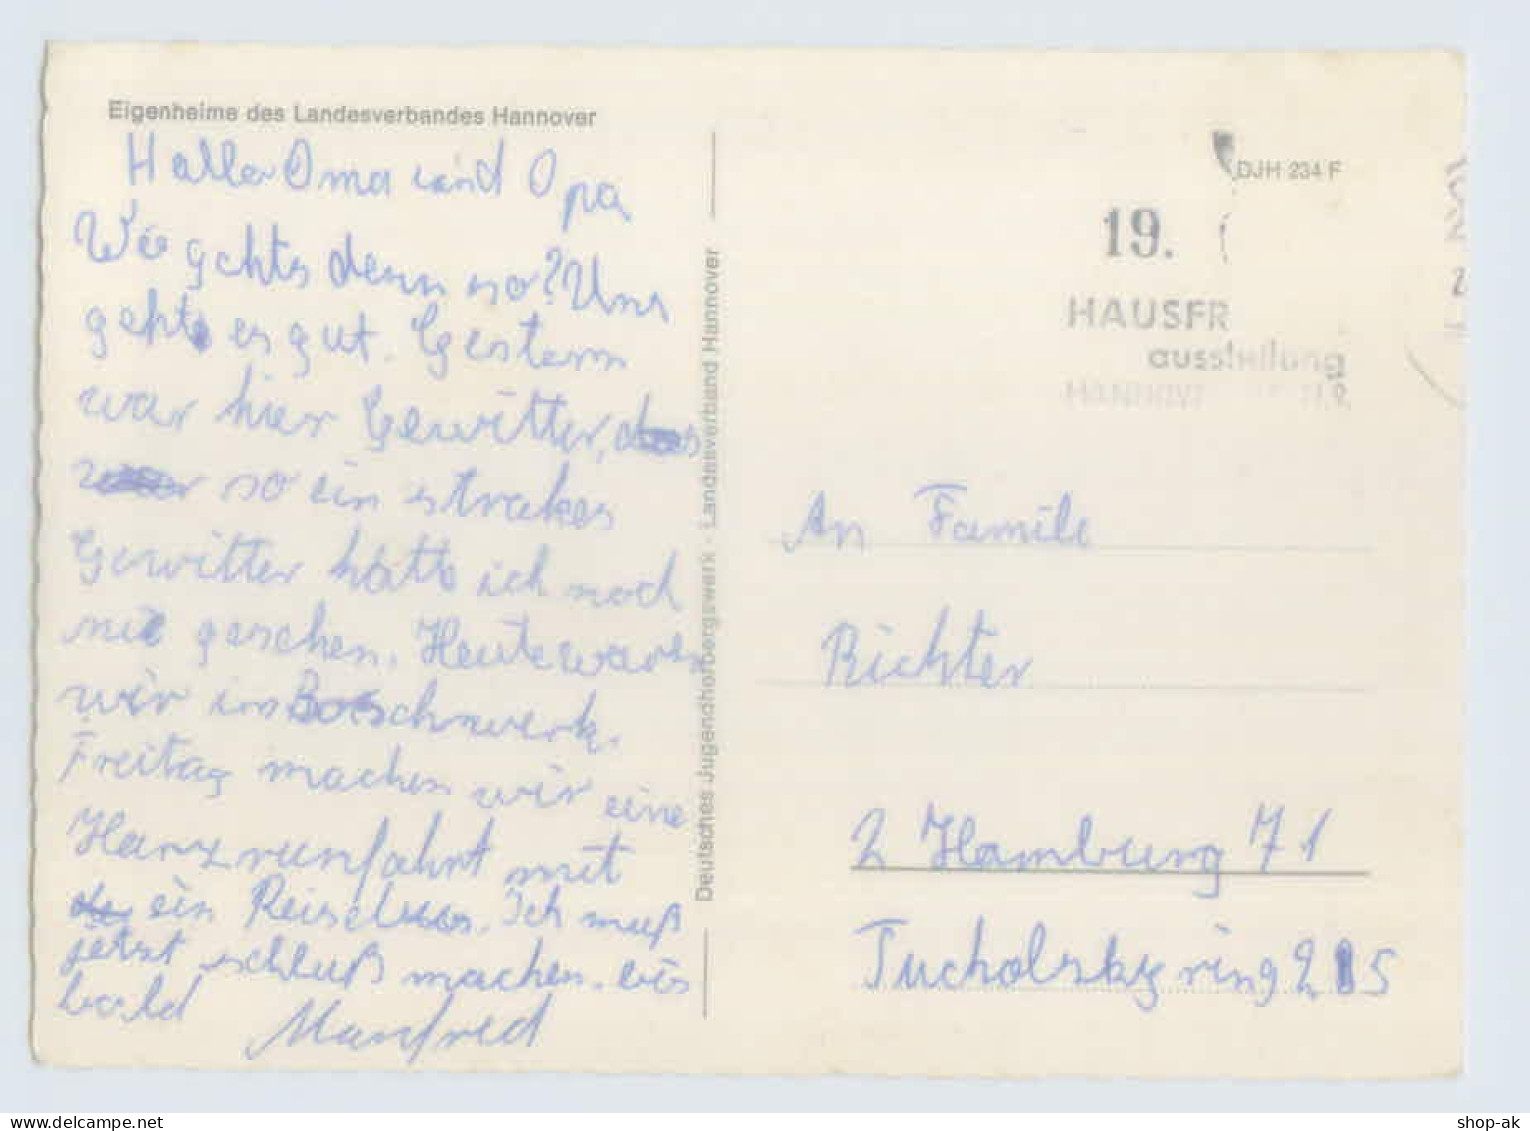 Eigenheime des Landesverbandes Hannover
Hallo Oma und Opa
Wie gehts denn so? Uns
geht es gut. Gestern
war hier Gewitter,
so ein strakes
Gewitter hatte ich noch
nie gesehen. Heute waren
wir im schnwerk.
Freitag machen wir eine
Harzrunfahrt mit
ein Reisebus. Ich muß
jetzt schluß machen. bis
bald Manfred
Deutsches Jugendherbergswerk - Landesverband Hannover
DJH 234 F
19.
HAUSFR
ausstellung
HANNOV
An Familie
Richter
2 Hamburg 71
Tucholskyring 215
shop-ak